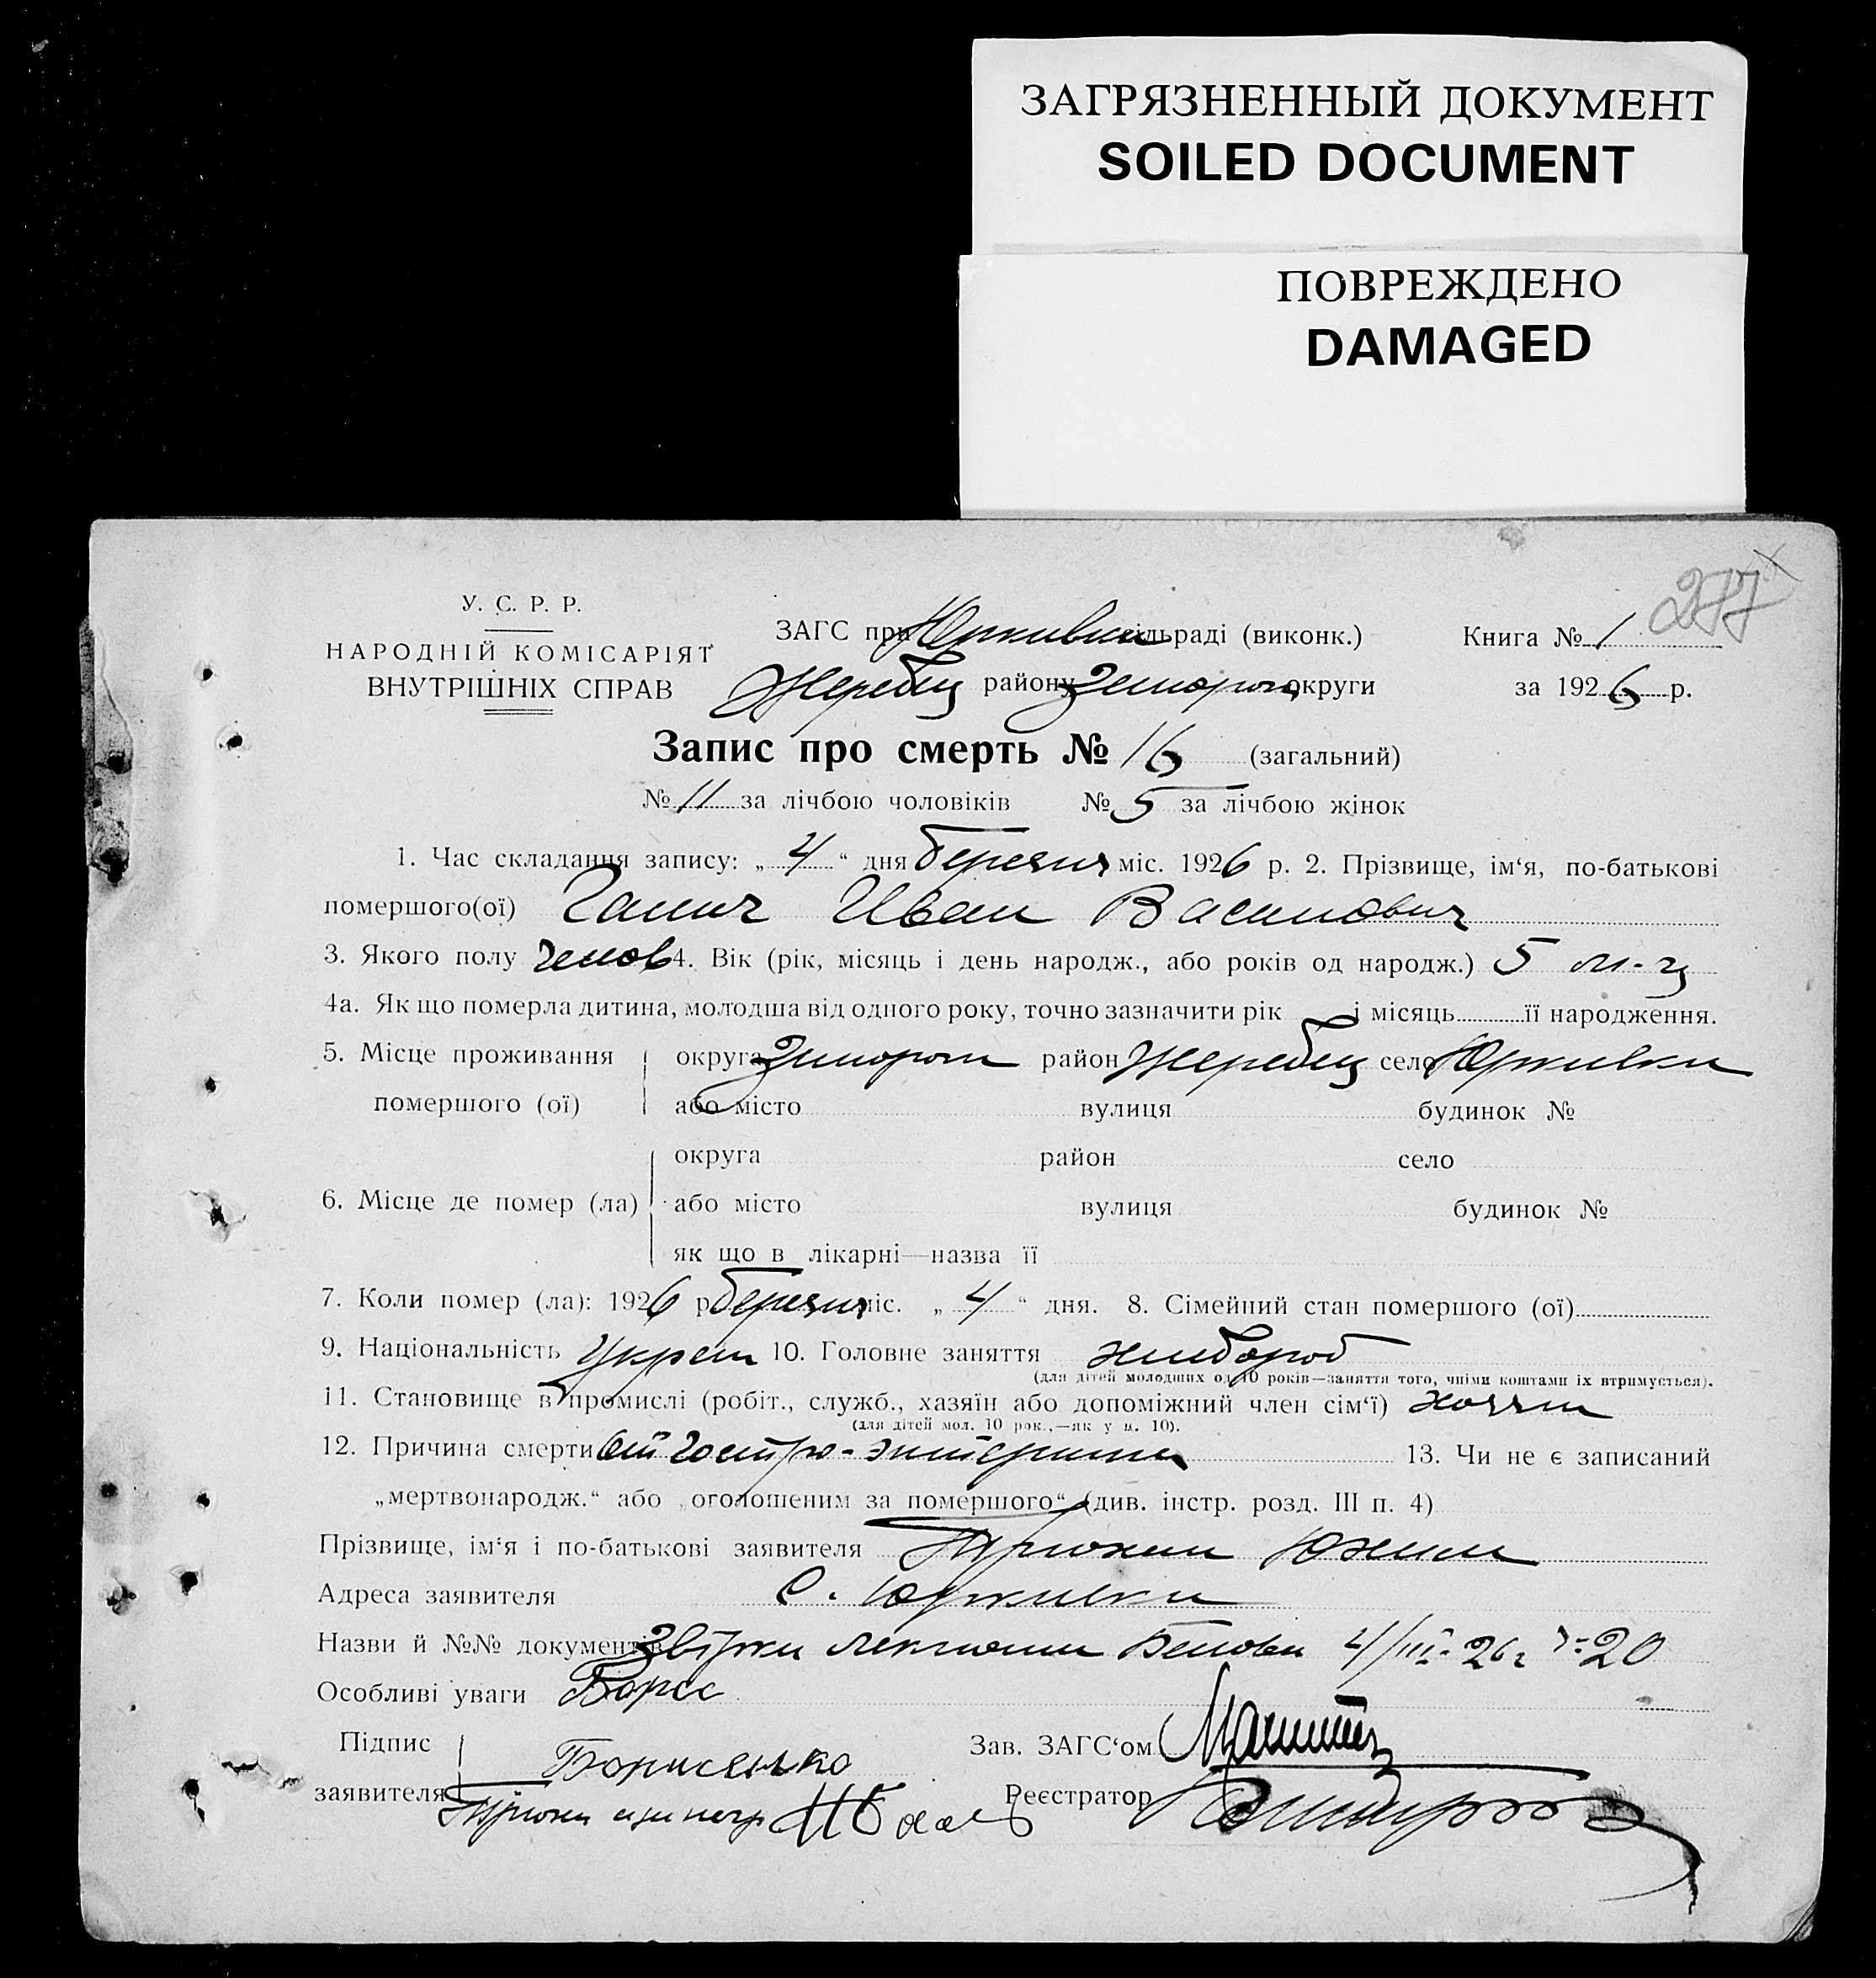 ЗАГРЯЗНЕННЫЙ ДОКУМЕНТ
SOILED DOCUMENT
ПОВРЕЖДЕНО
DAMAGED
277
У. С. Р. Р.
НАРОДНІЙ КОМІСАРІЯТ
ВНУТРІШНІХ СПРАВ
ЗАГС при Юркивки сільраді (виконк.)
Книга № 1
Жеребец району округи
за 1926 р.
Запис про смерть № 16 (загальний)
№ 11 за лічбою чоловіків № 5 за лічбою жінок
1. Час складання запису: „ 4 “ дня березня міс. 1926 р. 2. Прізвище, ім‘я, по-батькові
помершого(ої) Иван Василович
3. Якого полу челов 4. Вік (рік, місяць і день народж., або років од народж.) 5 м-ц
4а. Як що померла дитина, молодша від одного року, точно зазначити рік і місяць її народження.
5. Місце проживання округа район Жеребец село Юркивки
помершого (ої) або місто вулиця будинок №
округа район село
6. Місце де помер (ла) або місто вулиця будинок №
як що в лікарні—назва її
7. Коли помер (ла): 1926 р. березня міс. „ 4 “ дня. 8. Сімейний стан помершого (ої)
9. Національність Украін 10. Головне заняття хлибороб
(для дітей молодших од 10 років—заняття того, чиїми коштами їх втримується).
11. Становище в промислі (робіт., служб., хазяїн або допоміжний член сім‘ї) хозяин
(для дітей мол. 10 рок.,—як у п. 10).
12. Причина смерти 13. Чи не є записаний
„мертвонародж.“ або „оголошеним за помершого“ (див. інстр. розд. III п. 4)
Прізвище, ім‘я і по-батькові заявителя
Адреса заявителя с. Юркивки
Назви й №№ документів 4/III-26г 20
Особливі уваги
Підпис
заявителя Борисенко
Зав. ЗАГС‘ом
Реєстратор